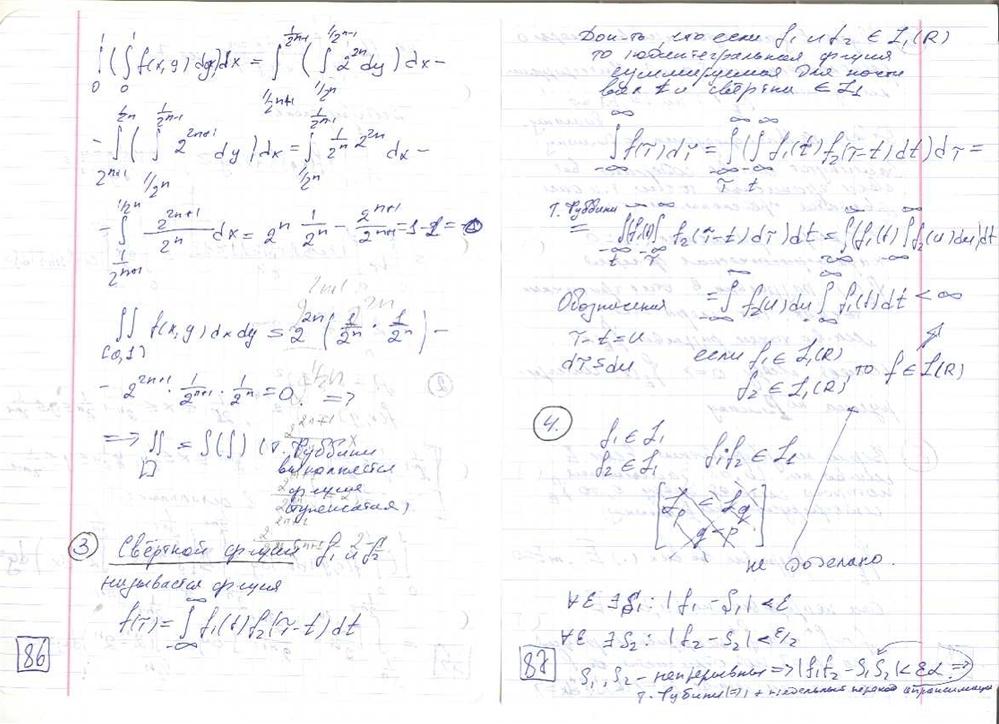 ∫₀¹(∫₀¹ f(x,y) dy)dx = ∫_{1/2^{n+1}}^{1/2^{n-1}} ( ∫_{1/2^n}^{1/2^{n-1}} 2^{2n} dy ) dx –
– ∫_{2^{n+1}}^{2^n} ( ∫_{1/2^n}^{1/2^{n-1}} 2^{2n+1} dy ) dx = ∫_{1/2^n}^{1/2^{n-1}} 1/2^n 2^{2n} dx –
– ∫_{1/2^{n+1}}^{1/2^n} 2^{2n+1}/2^n dx = 2^n 1/2^n – 2^{n+1}/2^{n+1} = 1-1 = 0
∬_{[0,1]} f(x,y) dx dy = 2^{2n} ( 1/2^n · 1/2^n ) –
– 2^{2n+1} · 1/2^{n+1} · 1/2^n = 0. =>
=> ∬_□ = ∫(∫) (т. Фубини
выполняется
ф-ция
ступенчатая)
③ Свёрткой ф-ций f₁ и f₂
называется ф-ция
f(τ) = ∫_{-∞}^{∞} f₁(t) f₂(τ-t) dt
86
Док-ть, что если f₁ и f₂ ∈ L₁(R)
то подинтегральная ф-ция
суммируемая для почти
всех t и свёртка ∈ L₁
∫_{-∞}^{∞} f(τ) dτ = ∫_{-∞}^{∞} (∫_{-∞}^{∞} f₁(t) f₂(τ-t) dt) dτ =
т. Фуббини = ∫_{-∞}^{∞} (f₁(t) ∫_{-∞}^{∞} f₂(τ-t) dτ) dt = ∫_{-∞}^{∞} (f₁(t) ∫_{-∞}^{∞} f₂(u) du) dt
Обозначения = ∫_{-∞}^{∞} f₂(u) du ∫_{-∞}^{∞} f₁(t) dt < ∞
τ-t = u
dτ = du
если f₁ ∈ L₁(R)
f₂ ∈ L₁(R) то f ∈ L(R)
④. f₁ ∈ L₁
f₂ ∈ L₁
f₁f₂ ∈ L₁
[ L_p ⊂ L_q
q < p ]
не доделано.
∀ε ∃S₁: |f₁ - S₁| < ε
∀ε ∃S₂: |f₂ - S₂| < ε/2
87
S₁, S₂ – непрерывны => |f₁f₂ - S₁S₂| < εα =>
т. Фубини (=) + предельный переход аппроксимации